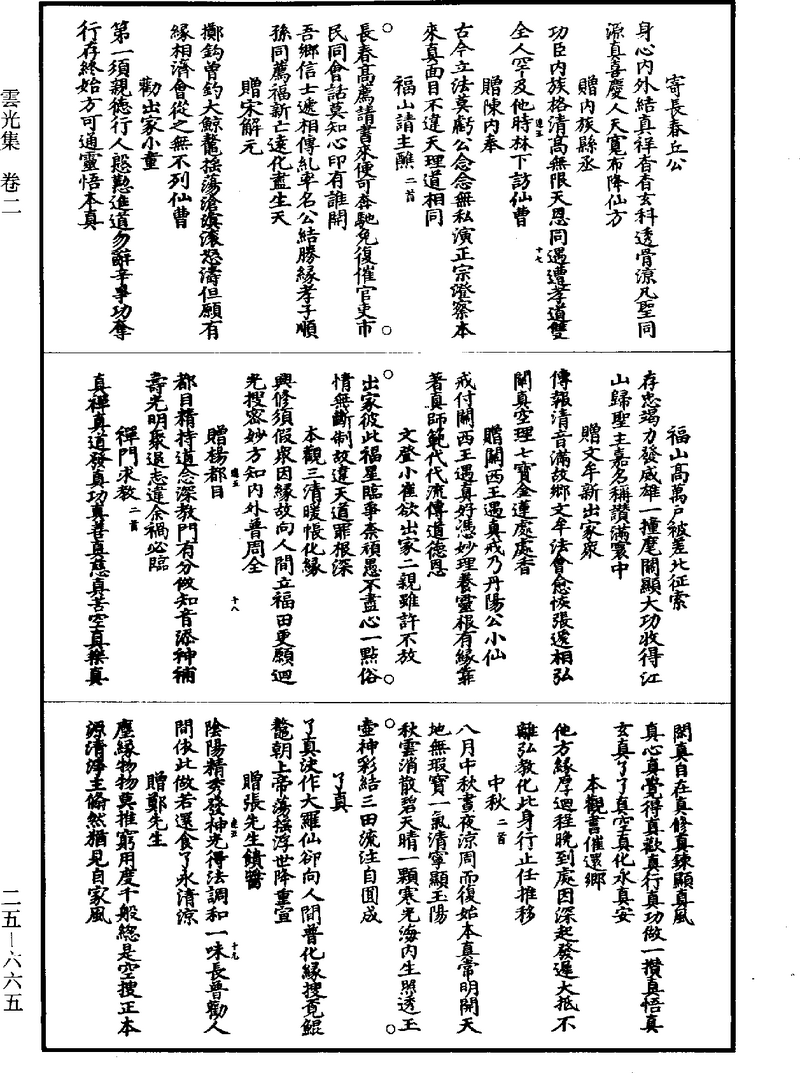 雲光集 卷二
寄長春丘公
身心內外結真祥杳杳玄科透骨涼凡聖同
源真喜慶人天寬布降仙方
贈內族縣丞
功臣內族格清高無限天恩同遇遭孝道雙
全人罕及他時林下訪仙曹
贈陳內奉
古今立法莫虧公念念無私演正宗澄察本
來真面目不違天理道相同
福山請主醮二首
長春高薦請書來便可奔馳免復催官吏市
民同會話莫知心印有誰開
吾鄉信士遞相傳糺率名公結勝緣孝子順
孫同薦福新亡遠化盡生天
贈宋解元
擲鈎曾釣大鯨鼇搖蕩滄溟滾怒濤但願有
緣相濟會從之無不列仙曹
勸出家小童
第一須親德行人慇懃進道勿辭辛爭功奪
行存終始方可通靈悟本真
福山高萬戶被差北征索
存忠竭力發威雄一撞麾關顯大功收得江
山歸聖主嘉名稱讚滿寰中
贈文牟新出家衆
傳報清音滿故鄉文牟法會愈恢張遞相弘
闡真空理七寶金蓮處處香
贈關西王遇真戒乃丹陽公小仙
戒付關西王遇真好憑妙理養靈根有緣靠
著真師範代代流傳道德恩
文登小崔欲出家二親雖許不放
出家彼此福星臨爭柰頑愚不盡心一點俗
情無斷制故違天道罪根深
本觀三清暖帳化緣
興修須假衆因緣故向人間立福田更願迴
光搜密妙方知內外普周全
贈楊都目
都目精持道念深教門有分做知音添神補
壽光明聚退志違余禍必臨
禪門求教二首
真禪真道發真功真善真慈真苦空真樂真
閑真自在真修真鍊顯真風
真心真覺得真歡真行真功做一攢真悟真
玄真了了真空真化水真安
本觀書催還鄉
他方緣厚迴程晚到處因深起發遲大抵不
離弘教化此身行止任推移
中秋二首
八月中秋晝夜涼周而復始本真常明開天
地無瑕寶一氣清寧顯玉陽
秋雲消散碧天晴一顆寒光海內生照透玉
壺神彩結三田流注自圓成
了真
了真決作大羅仙卻向人間普化緣搜覓鯤
鼇朝上帝蕩搖浮世降重宣
贈張先生饋醬
陰陽精秀發神光得法調和一味長普勸人
間依此做若還食了永清涼
贈鄭先生
塵緣物物莫推窮用度千般總是空搜正本
源清淨主翛然猶見自家風
二五—六六五